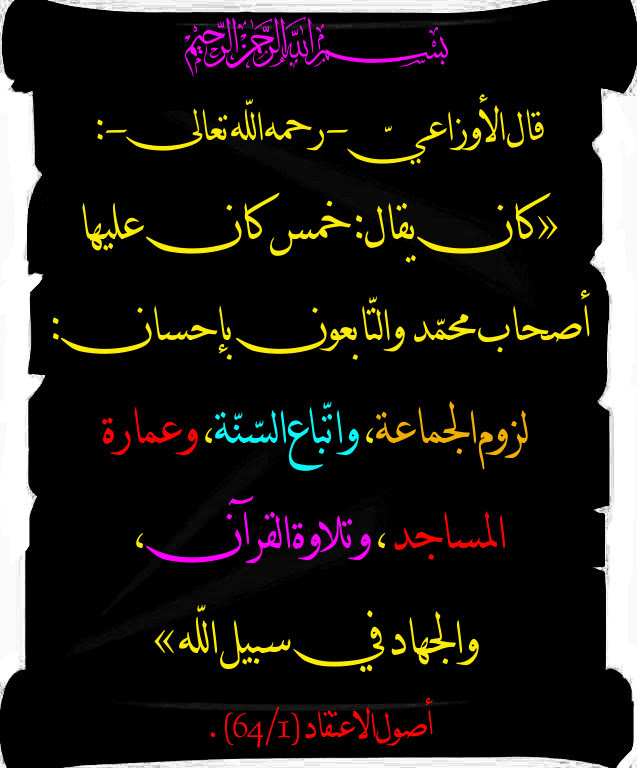 بسم الله الرحمن الرحيم
قال الأوزاعيّ –رحمه اللّه تعالى–:
«كان يقال: خمس كان عليها
أصحاب محمّد والتّابعون بإحسان:
لزوم الجماعة، واتّباع السّنّة، وعمارة
المساجد، وتلاوة القرآن،
والجهاد في سبيل اللّه»
أصول الاعتقاد (64/1) .